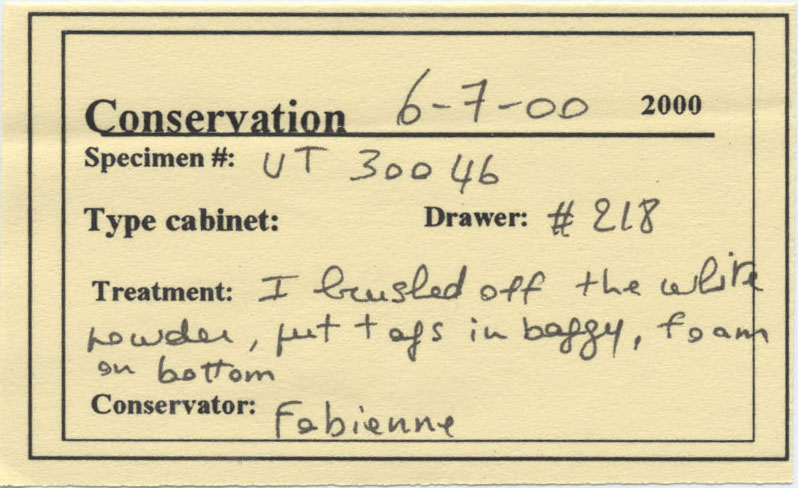 Conservation 6-7-00 2000
Specimen #: UT 30046
Type cabinet: Drawer: # 218
Treatment: I brushed off the white
powder, put tags in baggy, foam
on bottom
Conservator: Fabienne